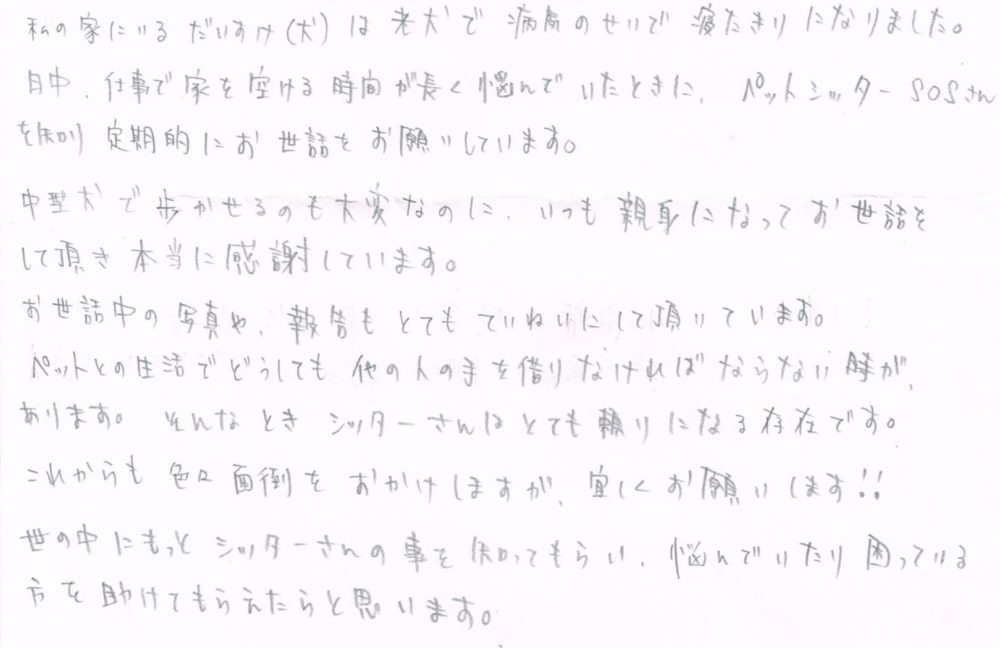 私の家にいるだいすけ(犬)は老犬で病気のせいで寝たきりになりました。
日中、仕事で家を空ける時間が長く悩んでいたときに、ペットシッターSOSさん
を知り定期的にお世話をお願いしています。
中型犬で歩かせるのも大変なのに、いつも親身になってお世話を
して頂き本当に感謝しています。
お世話中の写真や、報告もとてもていねいにして頂いています。
ペットとの生活でどうしても他の人の手を借りなければならない時が、
あります。そんなときシッターさんはとても頼りになる存在です。
これからも色々面倒をおかけしますが、宜しくお願いします!!
世の中にもっとシッターさんの事を知ってもらい、悩んでいたり困っている
方を助けてもらえたらと思います。